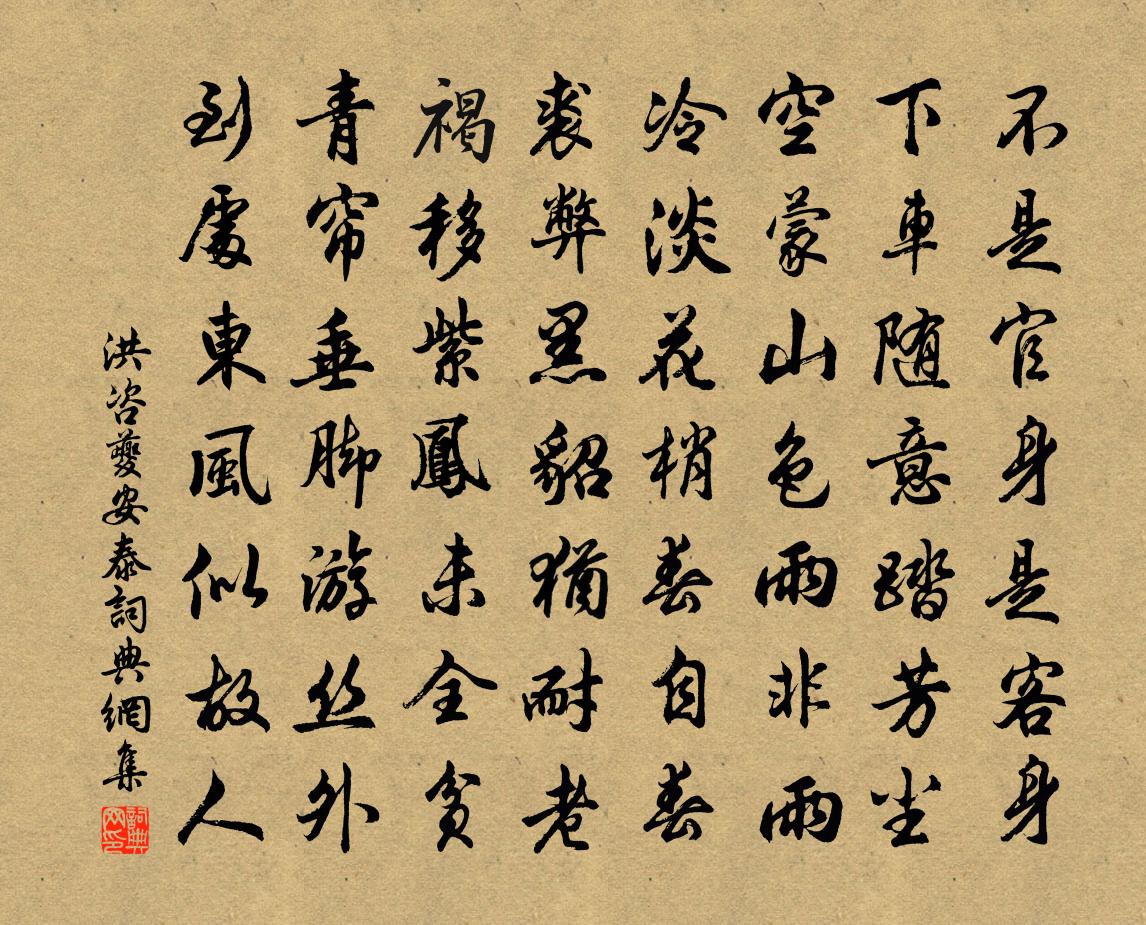 不是官身是客身
下車随意踏芳尘
空蒙山色雨非雨
冷淡花梢春自春
裘弊黑貂猶耐老
褐移紫鳳未全貧
青帘垂脚游丝外
到處東風似故人
洪咨夔安泰詞典網集
詞典网印